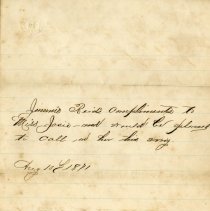 Jimmie Reids compliments to
Miss Josie and would be pleased
to call on her this
Aug 10th 1871